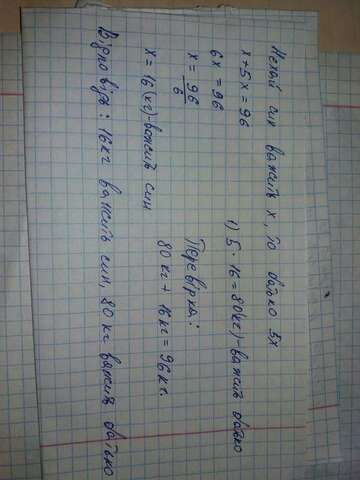 Нехай син важить х, то батько 5х
х+5х=96
6х=96
х=96/6
х=16(кг)-важить син
1) 5·16=80(кг)-важить батько
Перевірка:
80кг+16кг=96кг.
Відповідь: 16кг важить син, 80кг важить батько